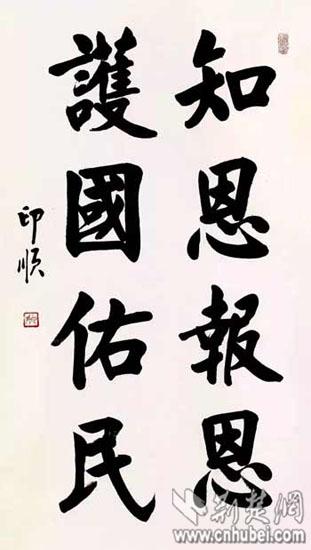 知恩報恩
護國佑民
印順
荆楚網
www.cnhubei.com